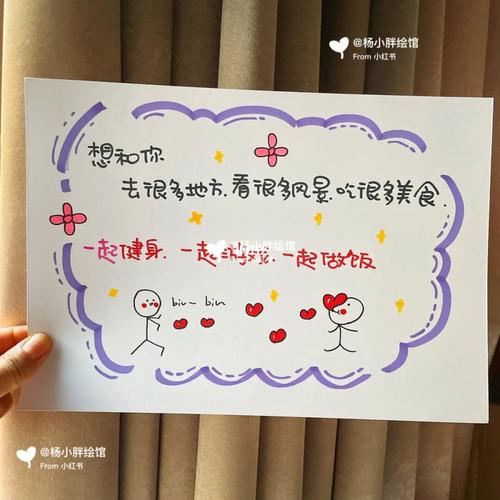 @杨小胖绘馆
From 小红书
想和你
去很多地方.看很多风景.吃很多美食.
一起健身.一起 一起做饭
@杨小胖绘馆
biu~ biu
@杨小胖绘馆
From 小红书